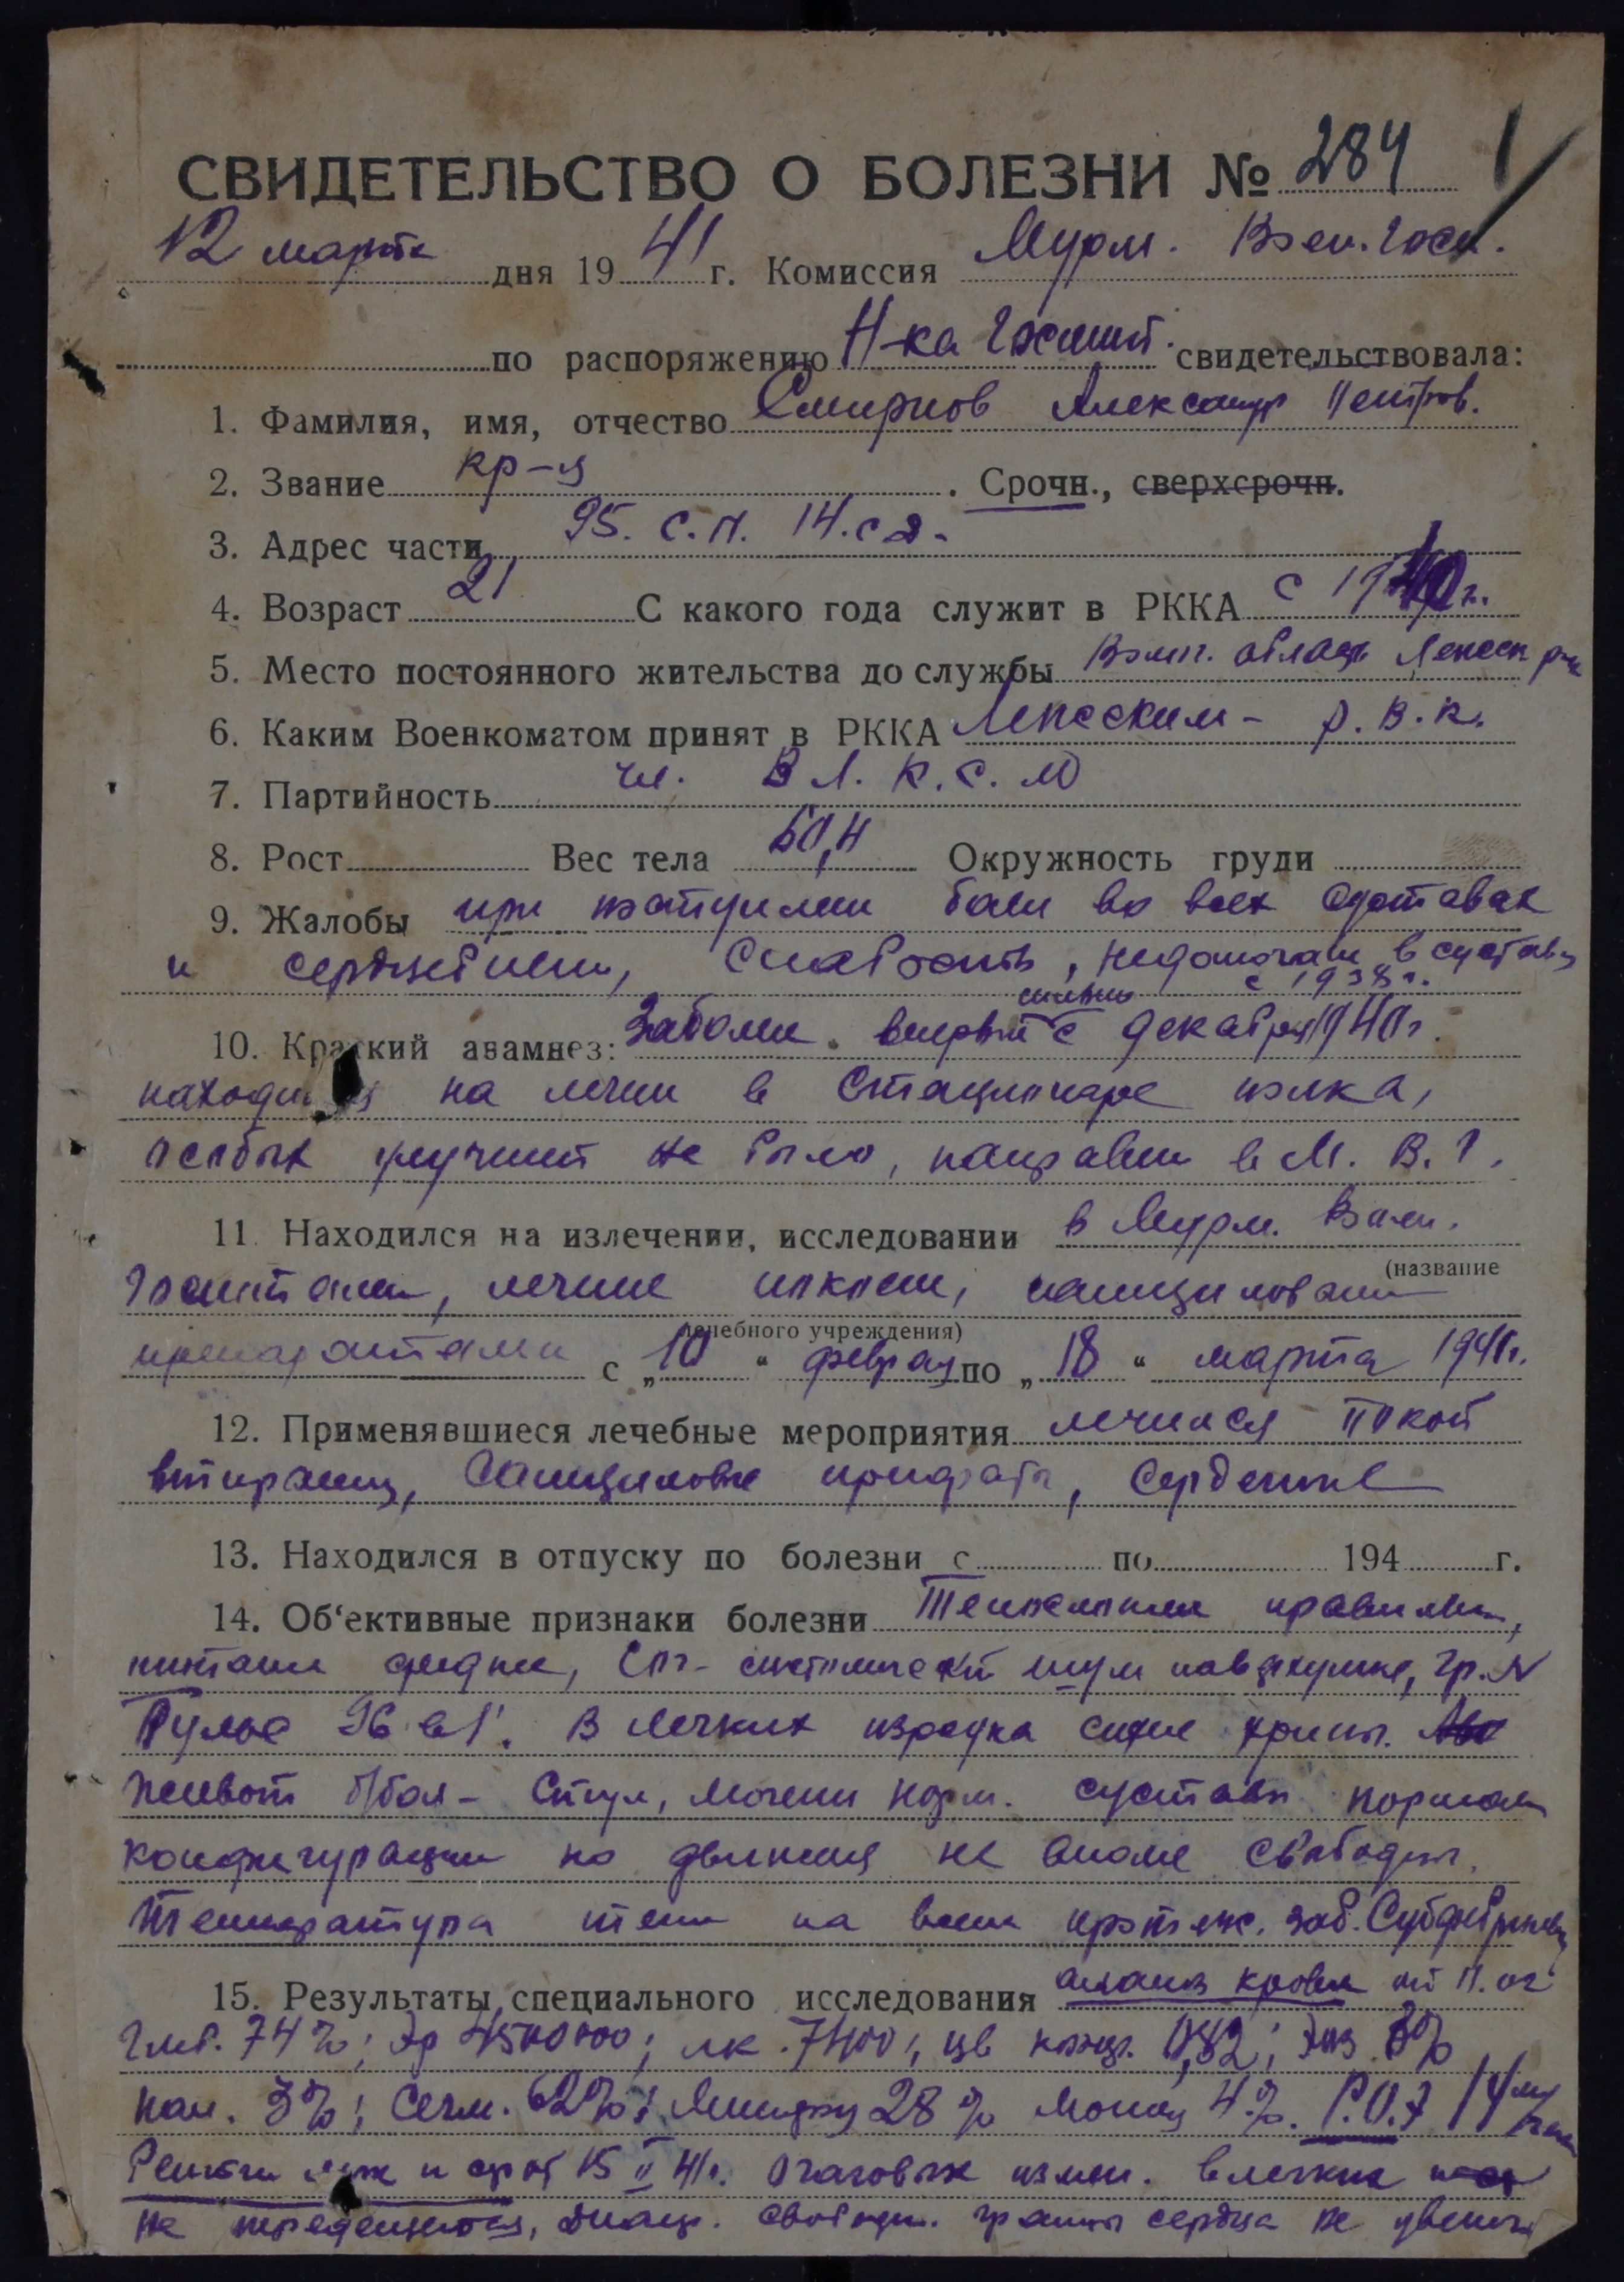 СВИДЕТЕЛЬСТВО О БОЛЕЗНИ № 284
12 марта дня 1941 г. Комиссия Мурм. Воен. Госп.
по распоряжению Н-ка Госпит. свидетельствовала:
1. Фамилия, имя, отчество Смирнов Александр Петров.
2. Звание кр-ц . Срочн., сверхсрочн.
3. Адрес части 95. с.п. 14. с д.
4. Возраст 21 С какого года служит в РККА с 1940 г.
5. Место постоянного жительства до службы область
6. Каким Военкоматом принят в РККА р. В. К.
7. Партийность чл. В Л. К. С. М
8. Рост Вес тела 60,4 Окружность груди
9. Жалобы при боли во всех суставах
и сердцебиени, слабость, в сустав
с 1938 г.
сильно
10. Краткий анамнез: Забол. впервые с декабря 1940 г.
находился на лечен в стационаре полка,
особых улучшений не было, направлен в М. В. Г.
11. Находился на излечении, исследовании в Мурм. Воен.
(название
Госпитали, лечение покоем,
лечебного учреждения)
препаратами с „10“ февраля по „18“ марта 1941 г.
12. Применявшиеся лечебные мероприятия лечился покой
втирания, салициловые препараты, сердечные
13. Находился в отпуску по болезни с по 194 г.
14. Об‘ективные признаки болезни Телосложение правильн,
питание средне, систолический шум на верхушке, гр. N
Пульс 96 в 1'. В легких изредка сухие хрипы.
Живот б/бол- Стул, мочеисп норм. суставы нормальн
конфигурации но движения не вполне свободны.
Температура тела на всем протяж. заб. Субфебрильн
15. Результаты специального исследования анализ крови от 11. 02
Гмб. 74%; Эр 4500000; лк. 7400; цв показ. 0,82; Эоз 3%
пал. 3%; Сегм. 62%; Лимфоц 28% Моноц 4%. Р.О.Э 14 мм/час
Рентген 15 II 41 г. Очаговых измен. в легких
не определяется, диафр. свободн. границы сердца не увелич